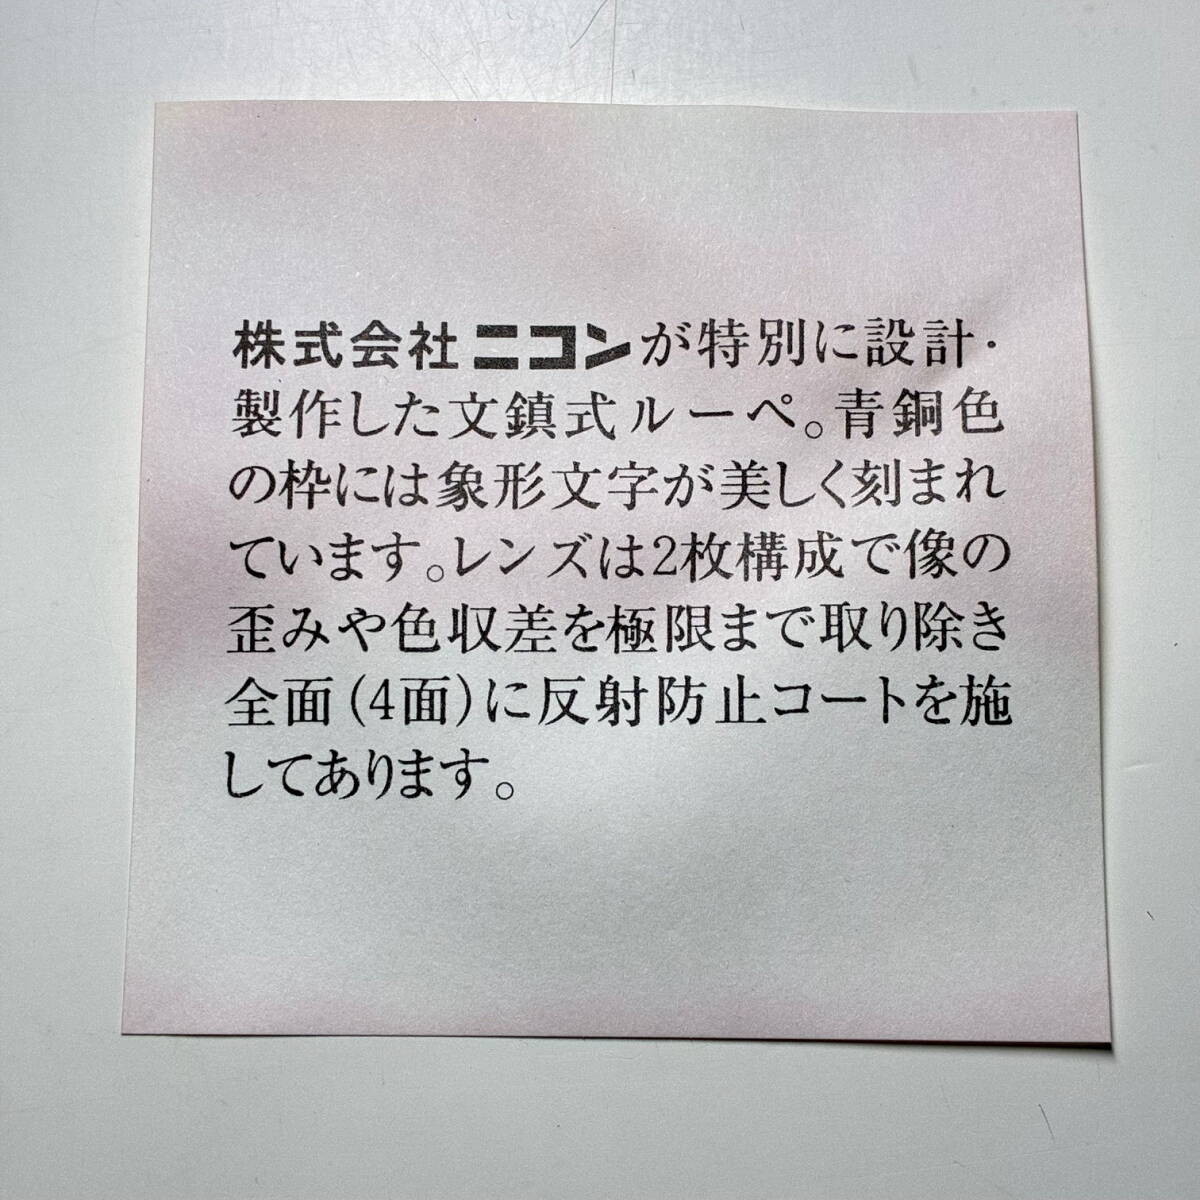 株式会社ニコンが特別に設計・
製作した文鎮式ルーペ。青銅色
の枠には象形文字が美しく刻まれ
ています。レンズは2枚構成で像の
歪みや色収差を極限まで取り除き
全面(4面)に反射防止コートを施
してあります。